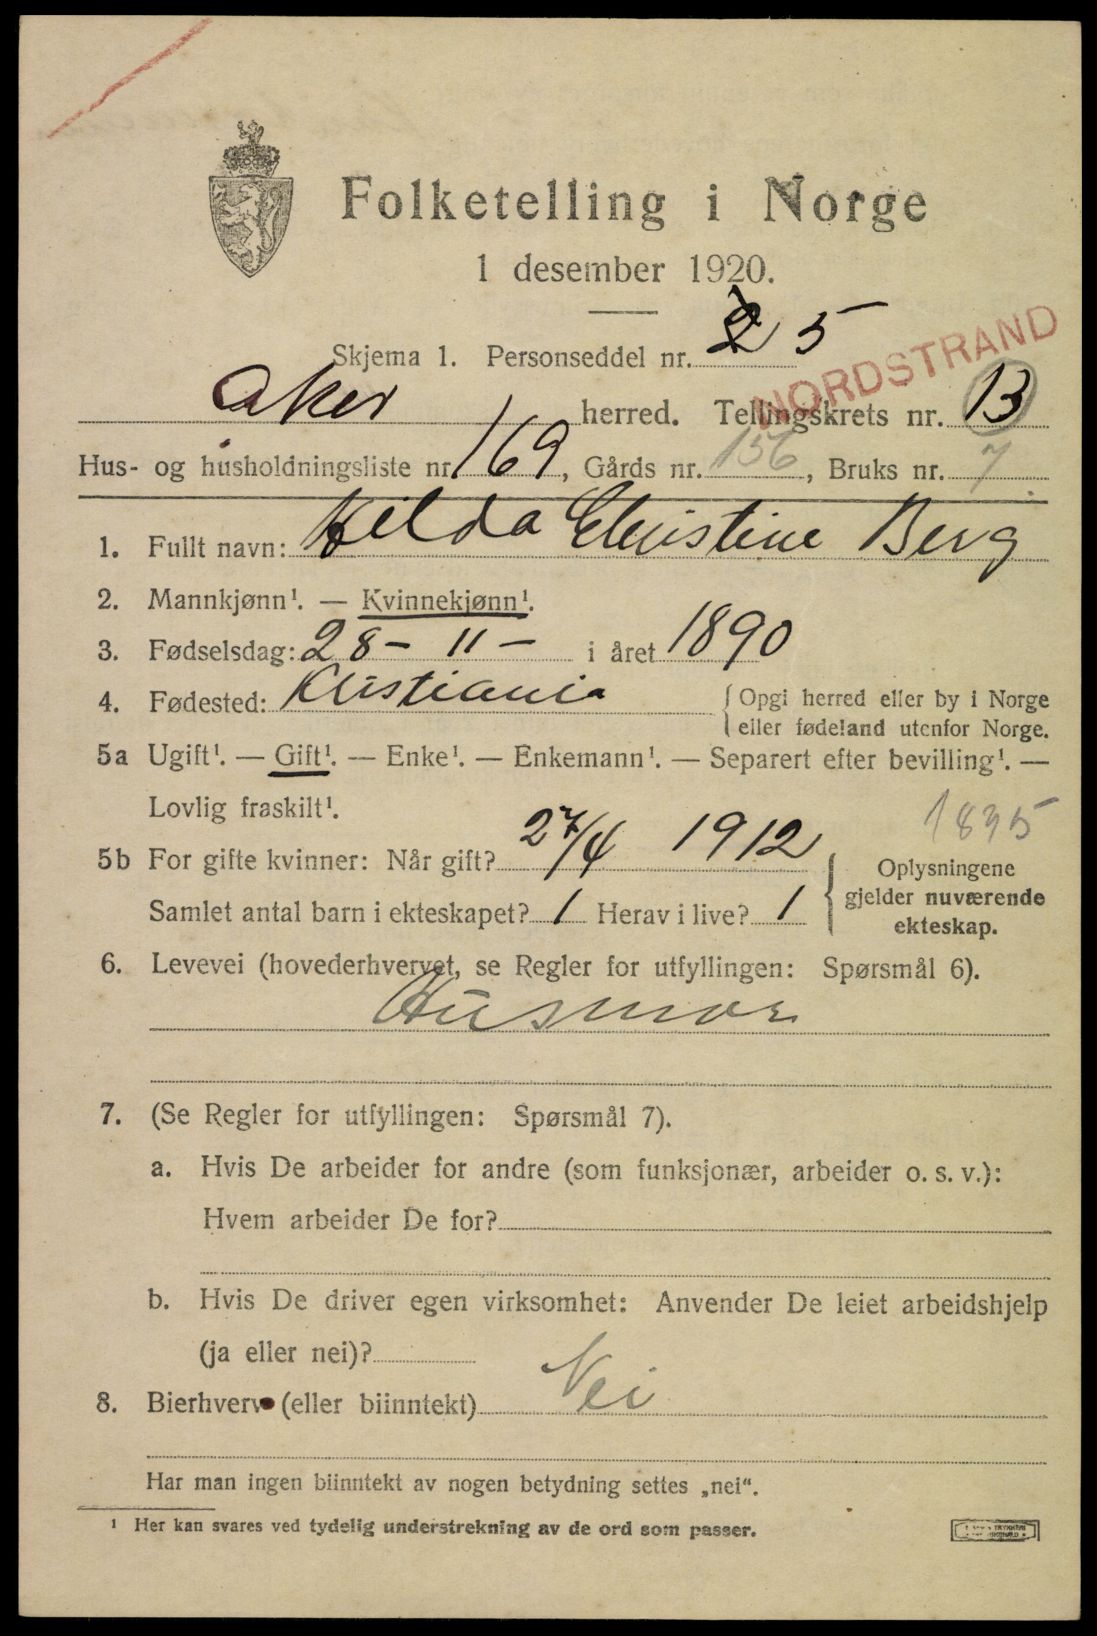 Folketelling i Norge
1 desember 1920.
Skjema 1. Personseddel nr. 2 5
NORDSTRAND
Aker herred. Tellingskrets nr. 13
Hus- og husholdningsliste nr. 169, Gårds nr. 156, Bruks nr. 7
1. Fullt navn: Hilda Christine Berg
2. Mannkjønn¹. — Kvinnekjønn¹.
3. Fødselsdag: 28 - 11 - i året 1890
4. Fødested: Kristiania { Opgi herred eller by i Norge
eller fødeland utenfor Norge.
5a Ugift¹. — Gift¹. — Enke¹. — Enkemann¹. — Separert efter bevilling¹. —
Lovlig fraskilt¹.
1895
5b For gifte kvinner: Når gift? 27/4 1912
Samlet antal barn i ekteskapet? 1 Herav i live? 1
Oplysningene
gjelder nuværende
ekteskap.
6. Levevei (hovederhvervet, se Regler for utfyllingen: Spørsmål 6).
Husmor
7. (Se Regler for utfyllingen: Spørsmål 7).
a. Hvis De arbeider for andre (som funksjonær, arbeider o. s. v.):
Hvem arbeider De for?
b. Hvis De driver egen virksomhet: Anvender De leiet arbeidshjelp
(ja eller nei)?
8. Bierhverv (eller biinntekt) Nei
Har man ingen biinntekt av nogen betydning settes „nei“.
¹ Her kan svares ved tydelig understrekning av de ord som passer.